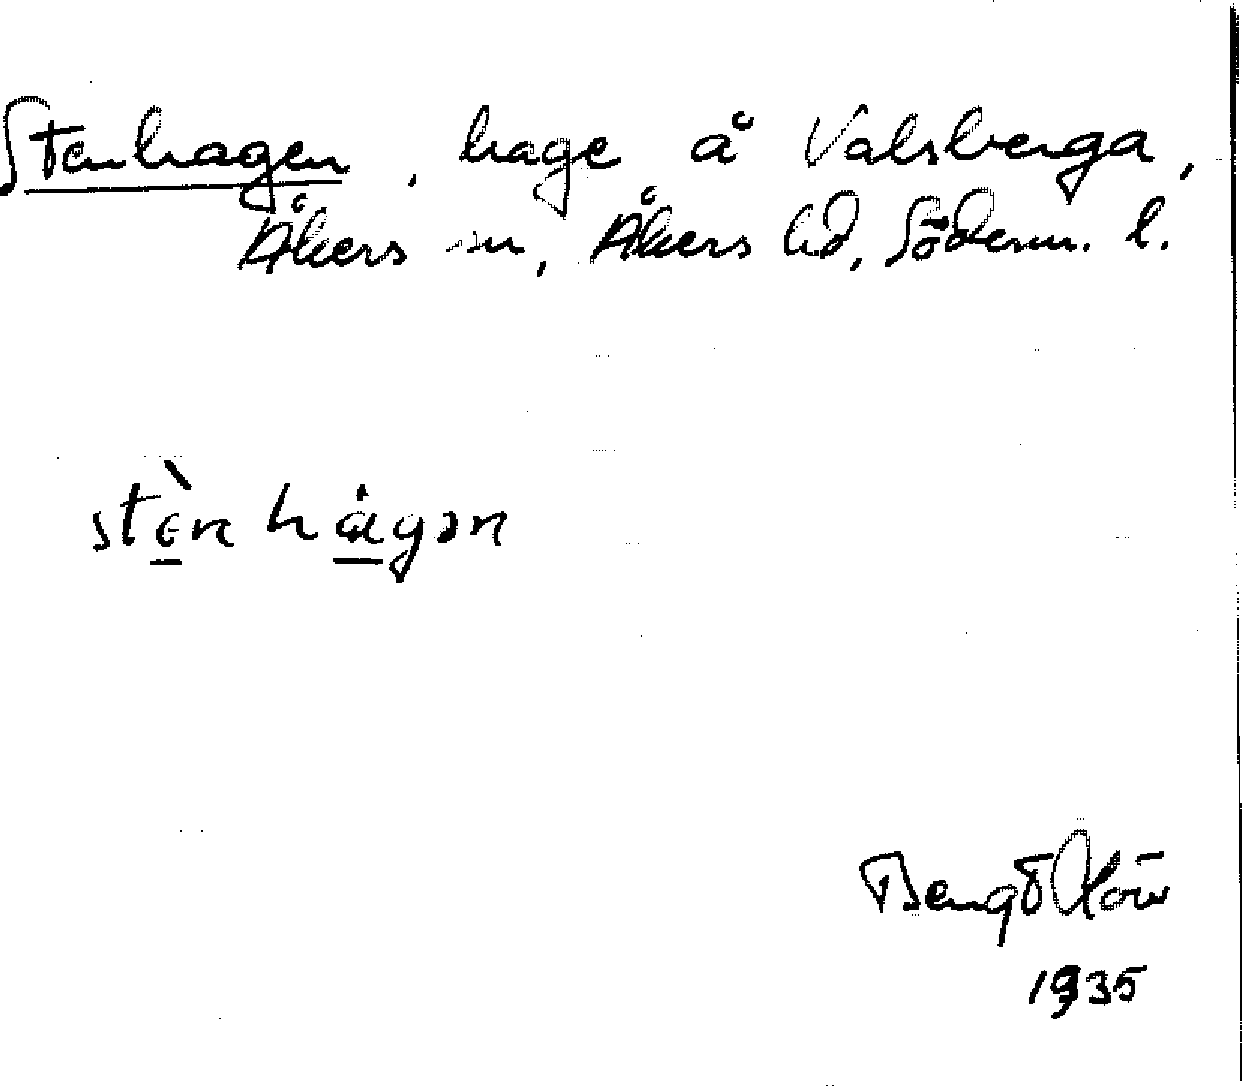 Stenhagen, hage å Valsberga,
Åkers sn, Åkers hd, Söderm. l.
stèn hágən
Bengt
1935